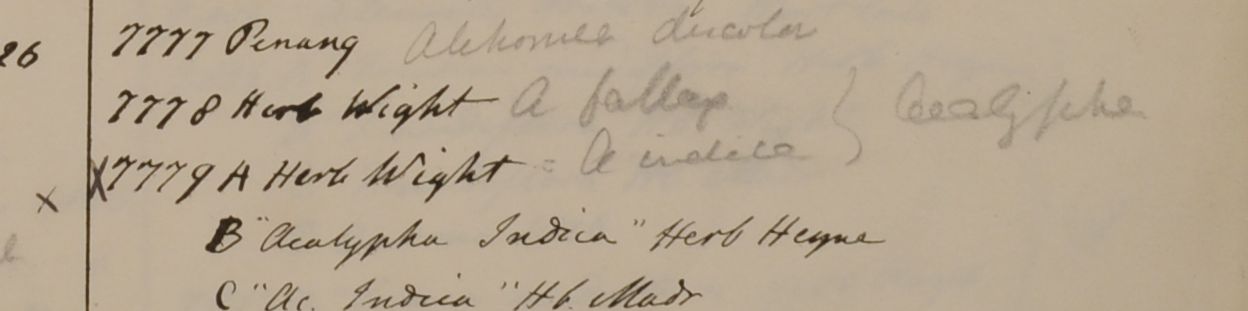 26 7777 Penang Alchornea discolor
7778 Herb Wight A fallax } Acalypha
X 7779 A Herb Wight = A indica
x
B "Acalypha Indica" Herb Heyne
C "Ac. Indica" Hb. Madr